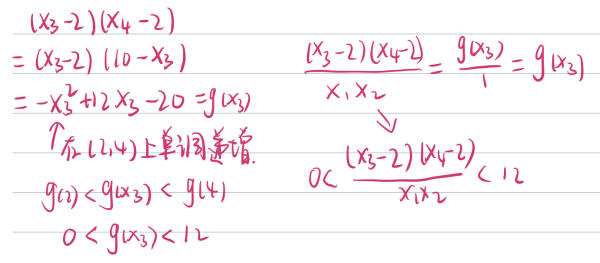 (x₃-2)(x₄-2)
= (x₃-2)(10-x₃)
= -x₃²+12x₃-20 = g(x₃)
↑在(2,4)上单调递增.
g(2) < g(x₃) < g(4)
0 < g(x₃) < 12
\frac{(x₃-2)(x₄-2)}{x₁x₂} = \frac{g(x₃)}{1} = g(x₃)
↘
0 < \frac{(x₃-2)(x₄-2)}{x₁x₂} < 12